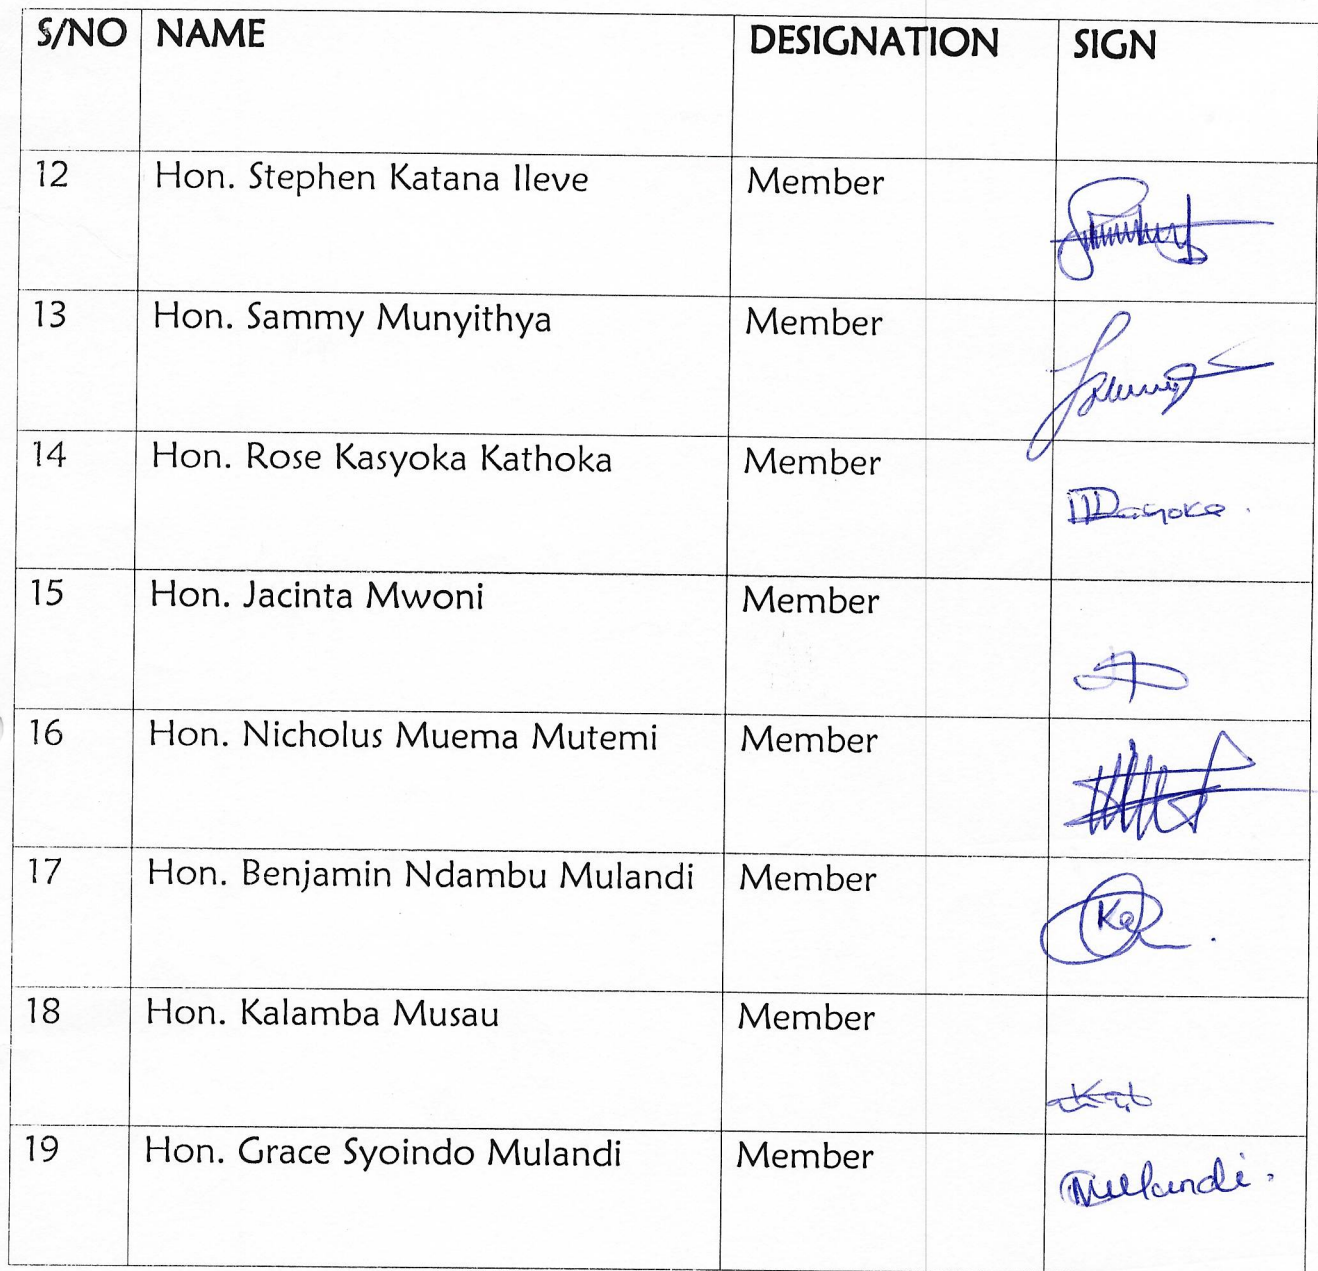 S/NO NAME DESIGNATION SIGN
12 Hon. Stephen Katana Ileve Member
13 Hon. Sammy Munyithya Member
14 Hon. Rose Kasyoka Kathoka Member
15 Hon. Jacinta Mwoni Member
16 Hon. Nicholus Muema Mutemi Member
17 Hon. Benjamin Ndambu Mulandi Member
18 Hon. Kalamba Musau Member
19 Hon. Grace Syoindo Mulandi Member Mulandi.